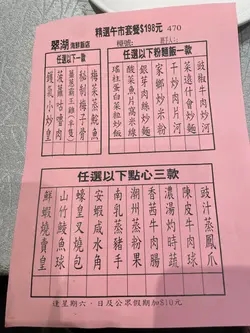 精選午市套餐$198元 470
翠湖 海鮮飯店
檯號:
任選以下一款
梅菜蒸鯇魚
秘制梅子骨
菠蘿咕嚕肉
鑊氣小炒皇
任選以下粉麵飯一款
豉椒牛肉炒河
菜遠什會炒麵
干炒肉片河
家鄉炒米粉
銀芽肉絲炒麵
酸菜魚片窩米
瑤柱蛋白菜粒炒飯
任選以下點心三款
豉汁蒸鳳爪
陳皮牛肉球
濃湯灼時蔬
香茜牛肉腸
潮州蒸粉果
南乳蒸豬手
安蝦咸水角
蠔皇叉燒包
山竹鯪魚球
鮮蝦燒賣皇
逢星期六、日及公眾假期加$10元